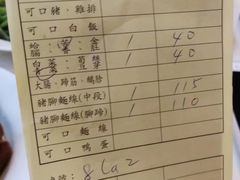 可口豬、雞排
可口白飯
蛤、薑、金 1 40
白菜、筍絲 1 40
大腸、蹄筋、鵝胗
豬腳麵線(中段) 1 115
豬腳麵線(腳蹄) 1 110
可口麵線
可口鴨蛋